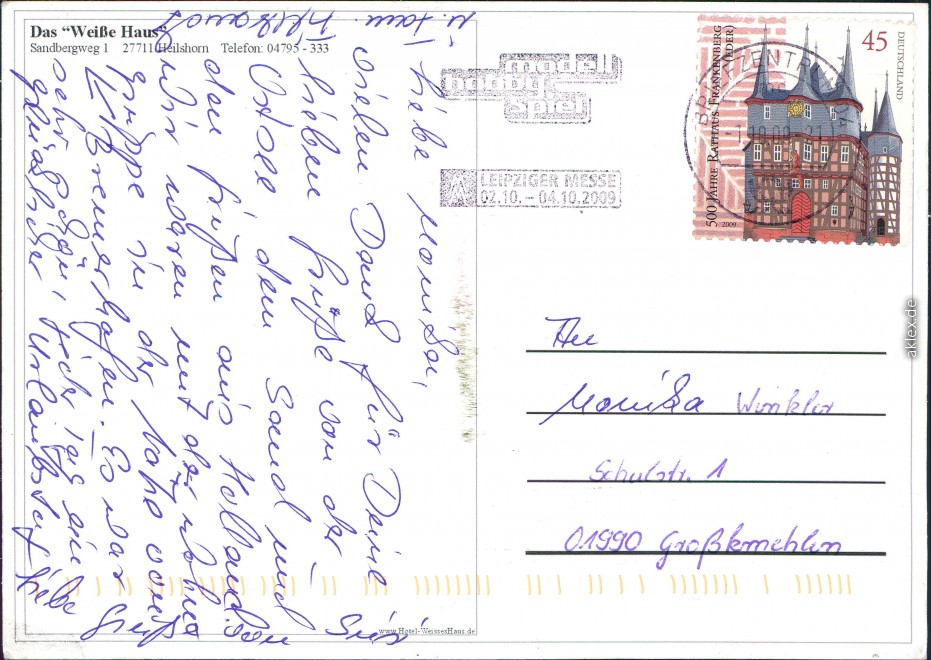 Das “Weiße Haus”
Sandbergweg 1 27711 Heilshorn Telefon: 04795 - 333
Liebe Monika,
vielen Dank für Deine
lieben Grüße von der
Ostsee, dem Sand und
den Grüßen aus Holland.
wir waren mit der
Gruppe in der Nähe von
Bremerhafen. Es war
sehr schön, jeder Tag ein
glücklicher Urlaubstag
model
hobby
spiel
LEIPZIGER MESSE
02.10. – 04.10.2009
BRIEFZENTRUM
500 JAHRE RATHAUS FRANKENBERG (EDER)
2009
45
DEUTSCHLAND
An
Monika Winkler
Schulstr. 1
01990 Großkmehlen
www.Hotel-WeissesHaus.de
aklex.de